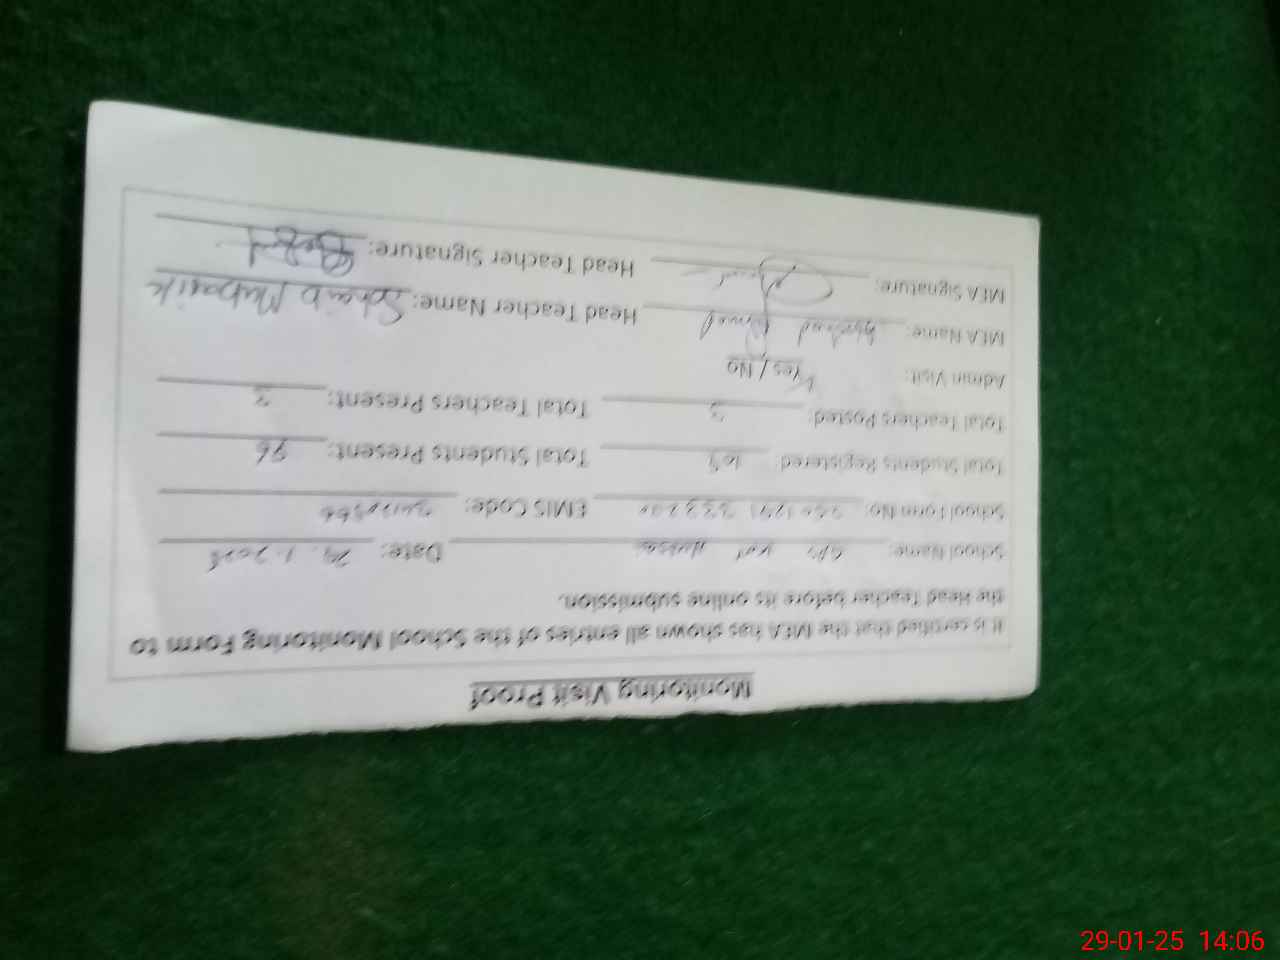 Monitoring Visit Proof
It is certified that the MEA has shown all entries of the School Monitoring Form to
the Head Teacher before its online submission.
School Name: GPS Date: 29.1.2025
School Form No: EMIS Code:
Total Students Registered: 109 Total Students Present: 96
Total Teachers Posted: 3 Total Teachers Present: 3
Admin Visit: Yes / No
MEA Name: Head Teacher Name: Mubarik
MEA Signature: Head Teacher Signature:
29-01-25 14:06